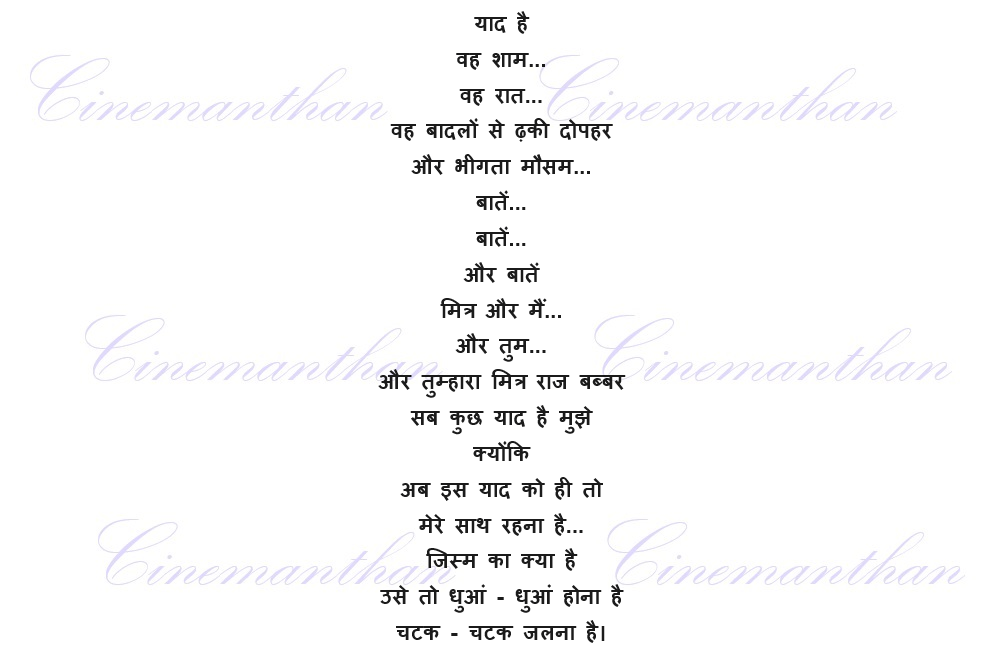 याद है
वह शाम...
वह रात...
वह बादलों से ढ़की दोपहर
और भीगता मौसम...
बातें...
बातें...
और बातें
मित्र और मैं...
और तुम...
और तुम्हारा मित्र राज बब्बर
सब कुछ याद है मुझे
क्योंकि
अब इस याद को ही तो
मेरे साथ रहना है...
जिस्म का क्या है
उसे तो धुआं - धुआं होना है
चटक - चटक जलना है।
Cinemanthan Cinemanthan
Cinemanthan Cinemanthan
Cinemanthan Cinemanthan